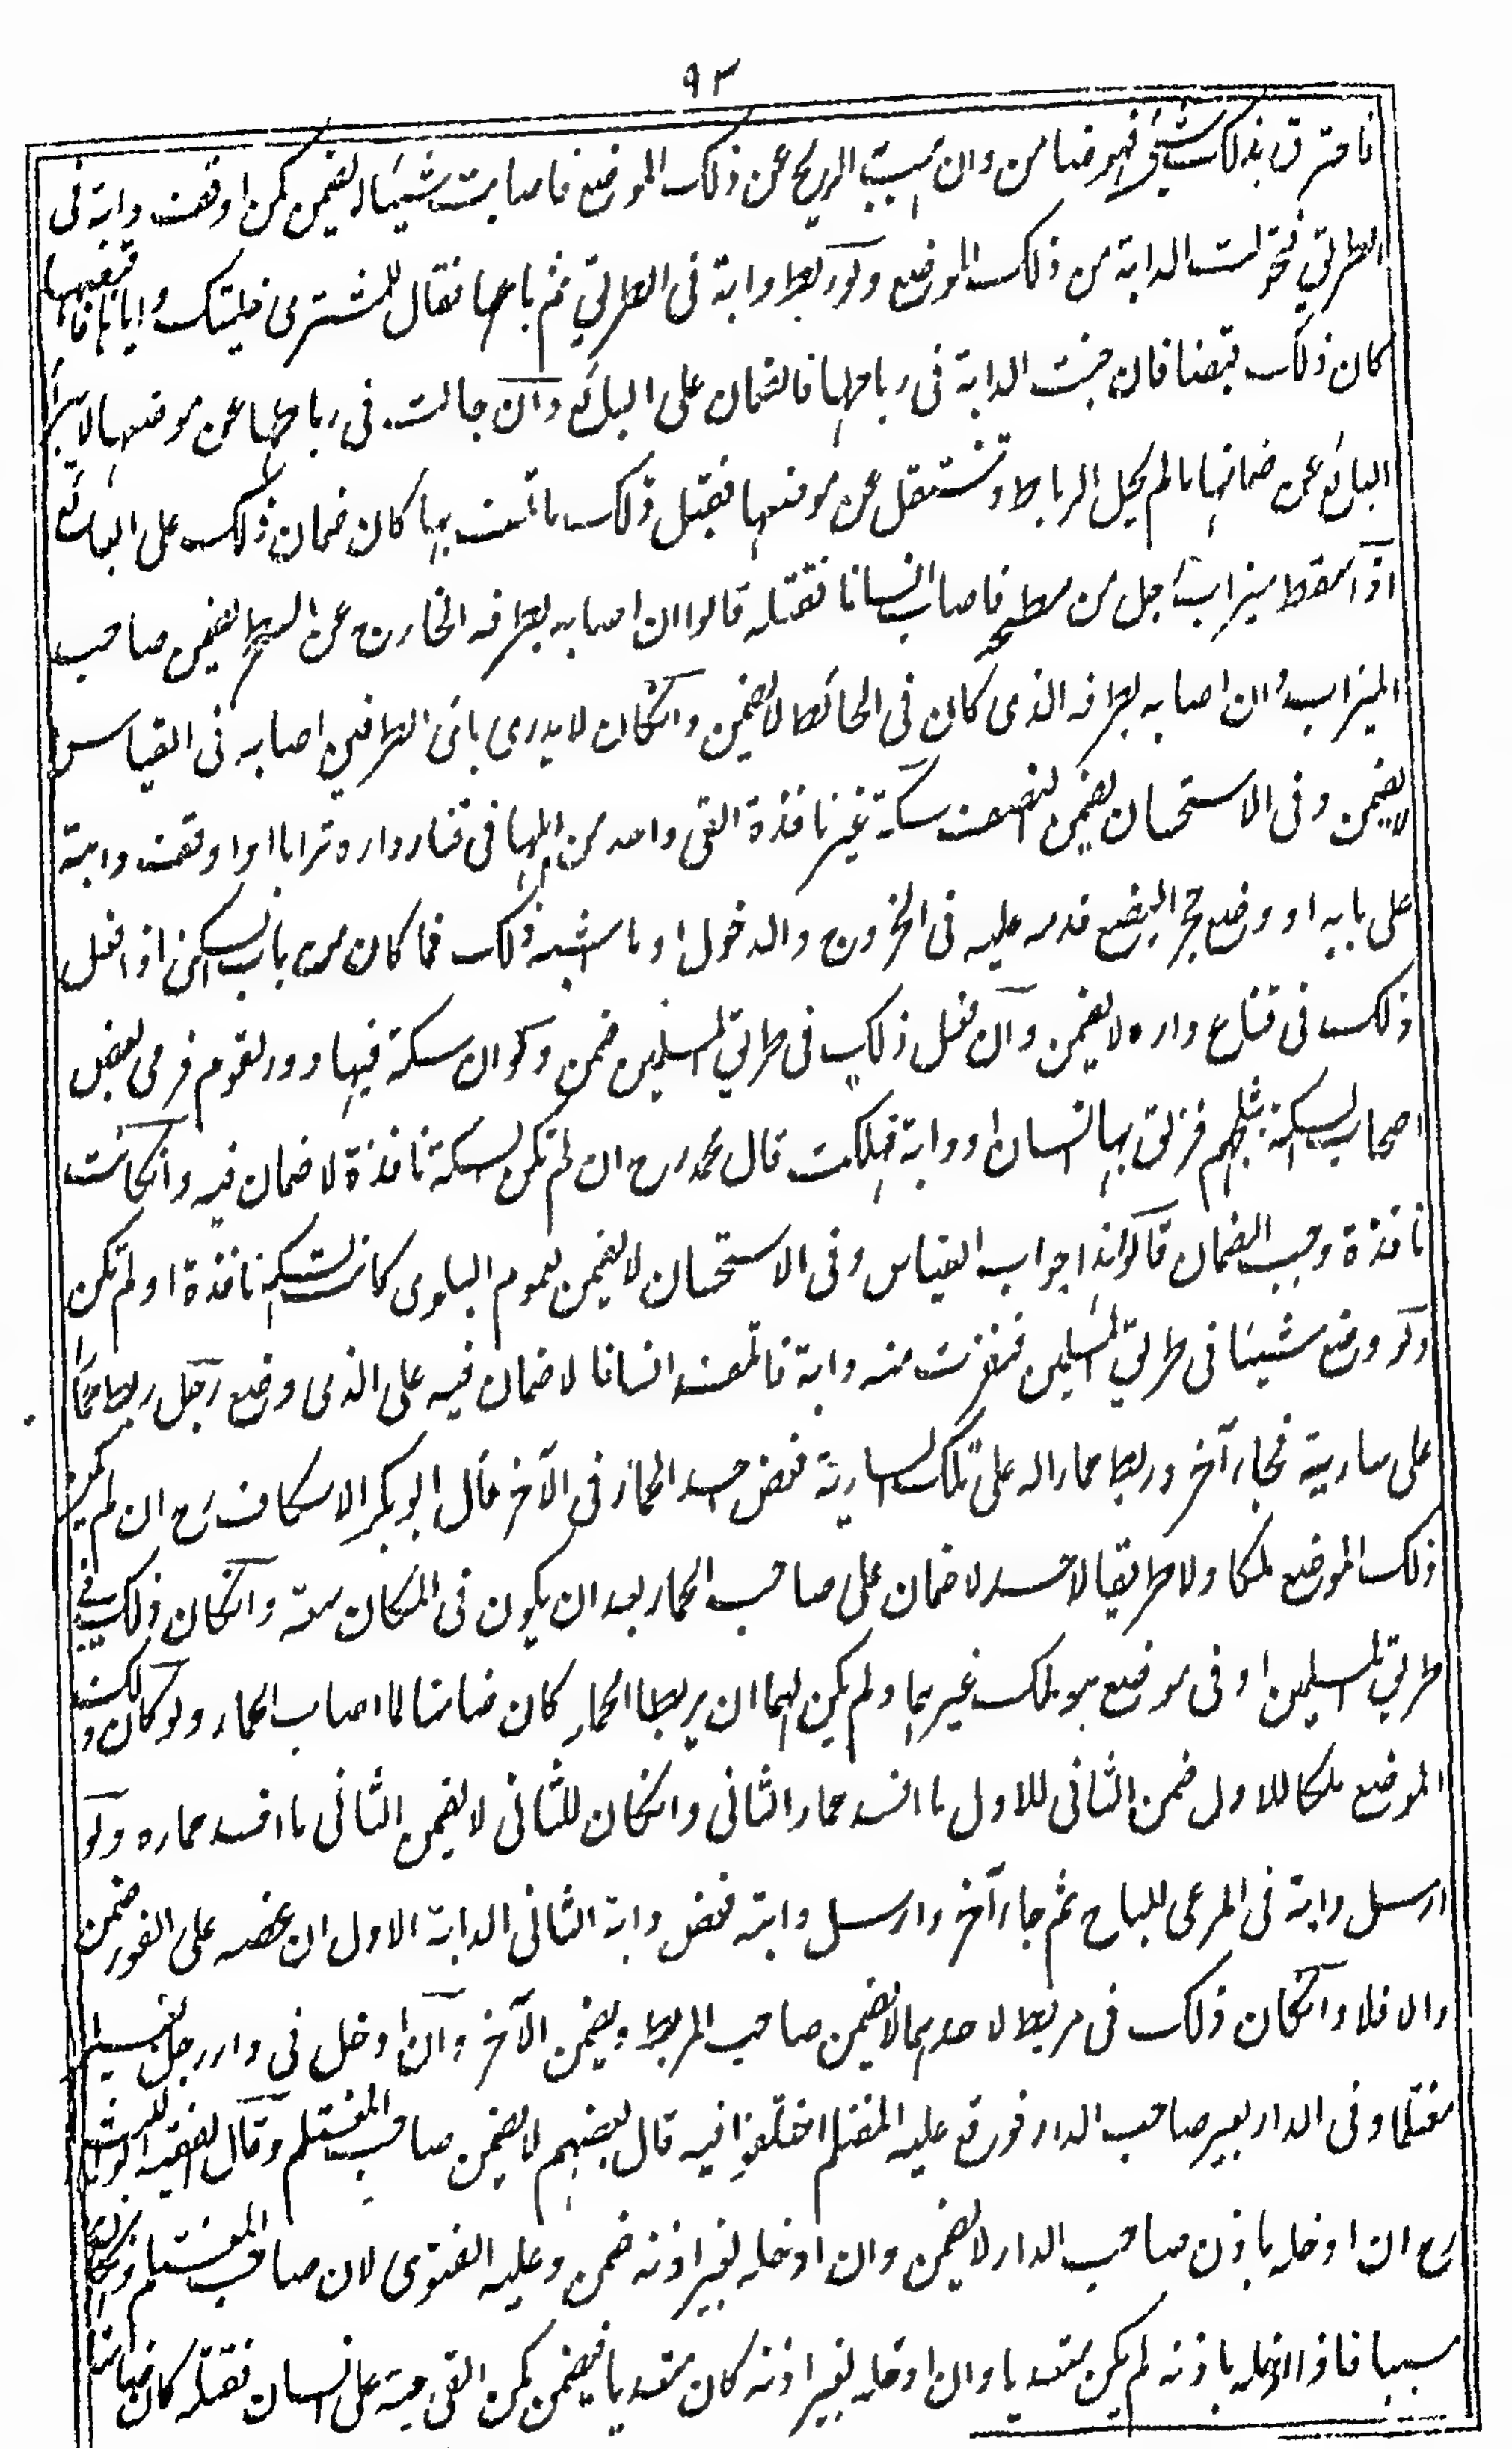 ٩٣
فاحترق بذلك شيئ فهو ضامن وان هبت الريح عن ذلك الموضع فاصابت شيئا لا يضمن كمن اوقفت دابة فى
الطريق فتحولت الدابة من ذلك الموضع ولو ربط دابة فى الطريق ثم باعها فقال للمشترى خليتك واياها فاقبضها
كان ذلك قبضا فان جنت الدابة فى رباطها فالضمان على البائع وان جالت فى رباطها عن موضعها لا يبرأ
البائع عن ضمانها ما لم يحل الرباط وتنتقل عن موضعها فقبل ذلك ما تلفت بها كان ضمان ذلك على البائع
اذا سقط ميزاب رجل من سطحه فاصاب انسانا فقتله قالوا ان اصابه بطرفه الخارج عن السطح يضمن صاحب
الميزاب وان اصابه بطرفه الذى كان فى الحائط لا يضمن وانكان لا يدرى باى الطرفين اصابه فى القياس
لا يضمن وفى الاستحسان يضمن النصف سكة غير نافذة القى واحد من اهلها فى فناء داره ترابا او اوقفت دابة
على بابه او وضع حجرا ليضع قدمه عليه فى الخروج والدخول او ما اشبه ذلك فما كان من باب السكنى اذا فعل
ذلك فى فناء داره لا يضمن وان فعل ذلك فى طريق المسلمين ضمن ولو ان سكة فيها دور لقوم فرمى بعض
اصحاب السكة بثلجهم فزلق بها انسان او دابة فهلكت قال محمد رح ان لم تكن السكة نافذة لا ضمان فيه وانكانت
نافذة وجب الضمان قالوا هذا جواب القياس وفى الاستحسان لا يضمن لعموم البلوى كانت السكة نافذة او لم تكن
ولو وضع شيئا فى طريق المسلمين فنفرت منه دابة فاتلفت انسانا لا ضمان فيه على الذى وضع رجل ربط حمارا
على سارية فجاء آخر وربط حمارا له على تلك السارية فعض احد الحمارين الآخر قال ابو بكر الاسكاف رح ان لم يكن
ذلك الموضع ملكا ولا طريقا لاحد لا ضمان على صاحب الحمار بعد ان يكون فى المكان سعة وانكان ذلك فى
طريق المسلمين او فى موضع هو ملك غيرهما ولم يكن لهما ان يربطا الحمار كان ضامنا لما اصاب الحمار ولو كان ذلك
الموضع ملكا للاول ضمن الثانى للاول ما افسد حمار الثانى وانكان للثانى لا يضمن الثانى ما افسد حماره ولو
ارسل دابة فى المرعى المباح ثم جاء آخر وارسل دابته فعض دابة الثانى الدابة الاول ان عضه على الفور ضمن
والا فلا وانكان ذلك فى مربط لاحدهما لا يضمن صاحب المربط ويضمن الآخر وان ادخل فى دار رجل بعيرا
مغتلما وفى الدار بعير صاحب الدار فوقع عليه المغتلم اختلفوا فيه قال بعضهم لا يضمن صاحب المغتلم وقال الفقيه ابو الليث
رح ان ادخله باذن صاحب الدار لا يضمن وان ادخله بغير اذنه ضمن وعليه الفتوى لان صاحب المغتلم وانكان
سببا فاذا ادخله باذنه لم يكن متعديا وان ادخله بغير اذنه كان متعديا فيضمن كمن القى حية على انسان فقتلته كان ضامنا